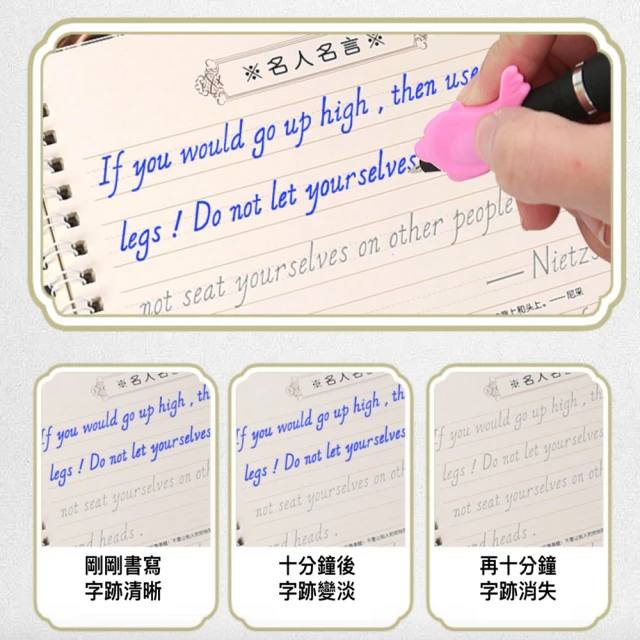 ※名人名言※
If you would go up high , then use
legs ! Do not let yourselves
not seat yourselves on other people
— Nietzs
上和头上。——尼采
※名人名
If you would go up high , th
legs ! Do not let yourselves
not seat yourselves on oth
d heads .
剛剛書寫
字跡清晰
※名人名
If you would go up high , th
legs ! Do not let yourselves
not seat yourselves on oth
d heads .
十分鐘後
字跡變淡
※名人名
If you would go up high , th
legs ! Do not let yourselves
not seat yourselves on oth
d heads .
再十分鐘
字跡消失